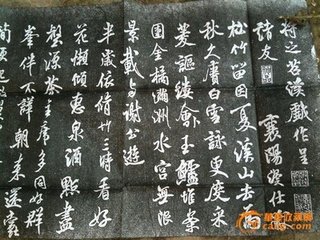 将之苕溪戲作呈
諸友
襄陽漫仕黻
松竹留因夏溪山去為
秋久賡白雪詠更度采
菱謳縷會玉鱸堆案
團金橘滿洲水宮無限
景載與謝公遊
半歲依修竹三時看好
花懶傾惠泉酒點盡
壑源茶主席多同好群
峯伴不譁朝來還蠹
簡便起